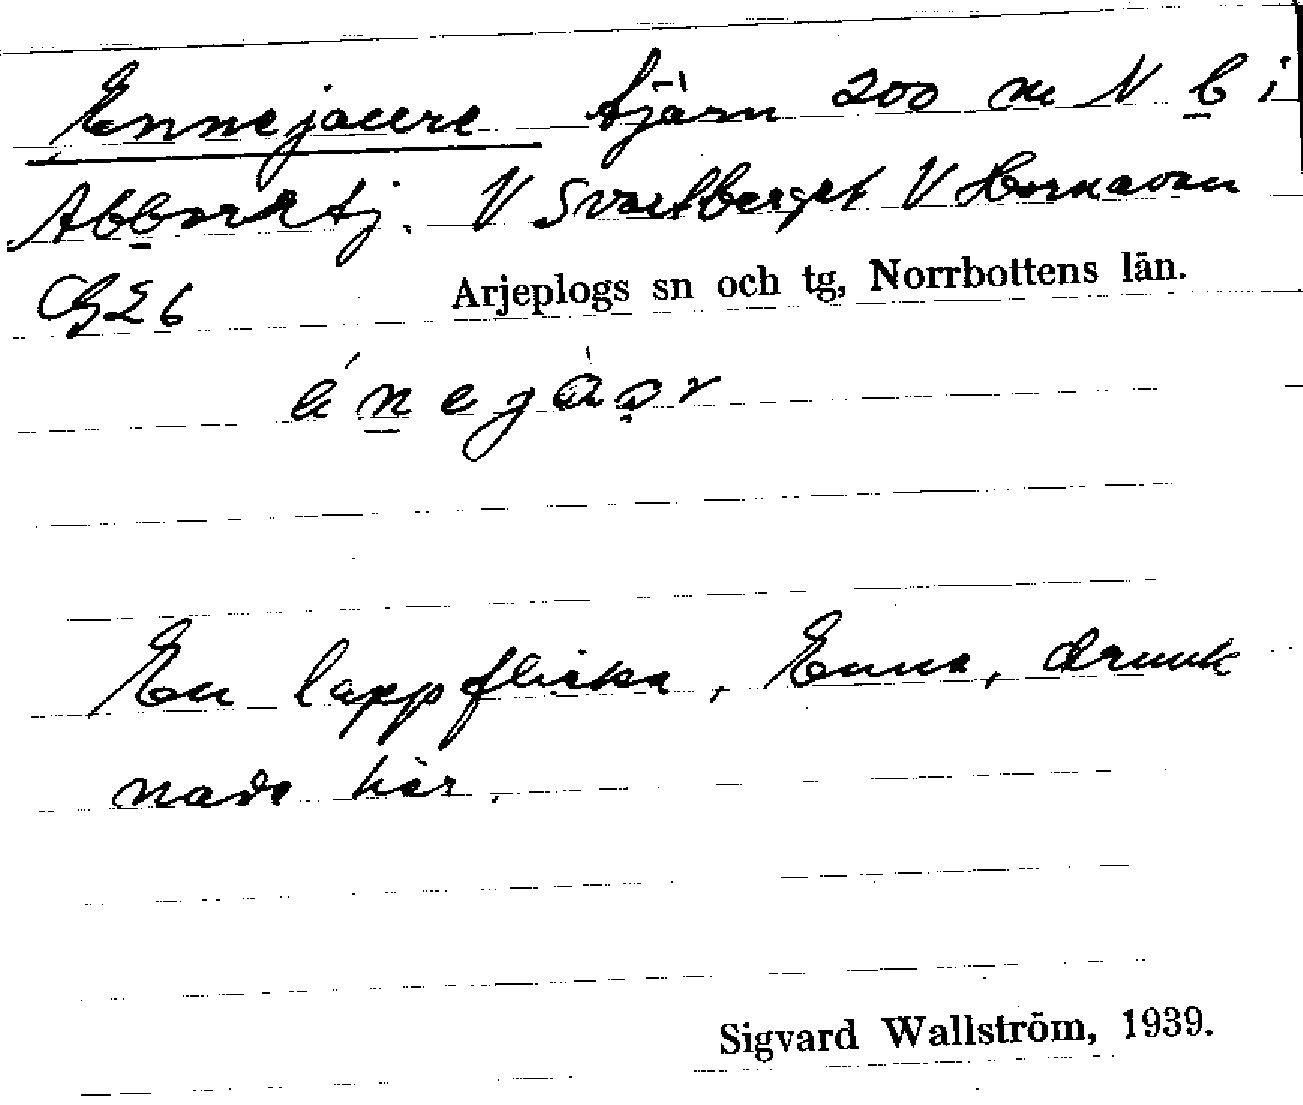 Ennejaure tjärn 200 m N b i
Abborrtj. V Svartberget V Hornavan
Arjeplogs sn och tg, Norrbottens län.
En lappflicka, Enna, drunk
nade här.
Sigvard Wallström, 1939.